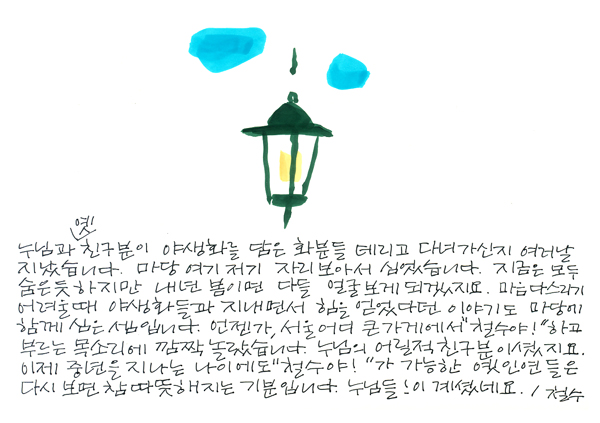 누님과 옛 친구분이 야생화를 담은 화분들 데리고 다녀가신지 여러날
지났습니다. 마당 여기 저기 자리보아서 심었습니다. 지금은 모두
숨은듯 하지만 내년 봄이면 다들 얼굴보게 되겠지요. 마음 다스리기
어려울때 야생화들과 지내면서 힘을 얻었다던 이야기도 마당에
함께 심은 셈입니다. 언젠가, 서울 어디 큰가게에서 "철수야!" 하고
부르는 목소리에 깜짝 놀랐습니다. 누님의 어릴적 친구분이셨지요.
이제 중년을 지나는 나이에도 "철수야!"가 가능한 옛 인연들은
다시 보면 참 따뜻해지는 기분입니다. 누님들!이 계셨네요. / 철수